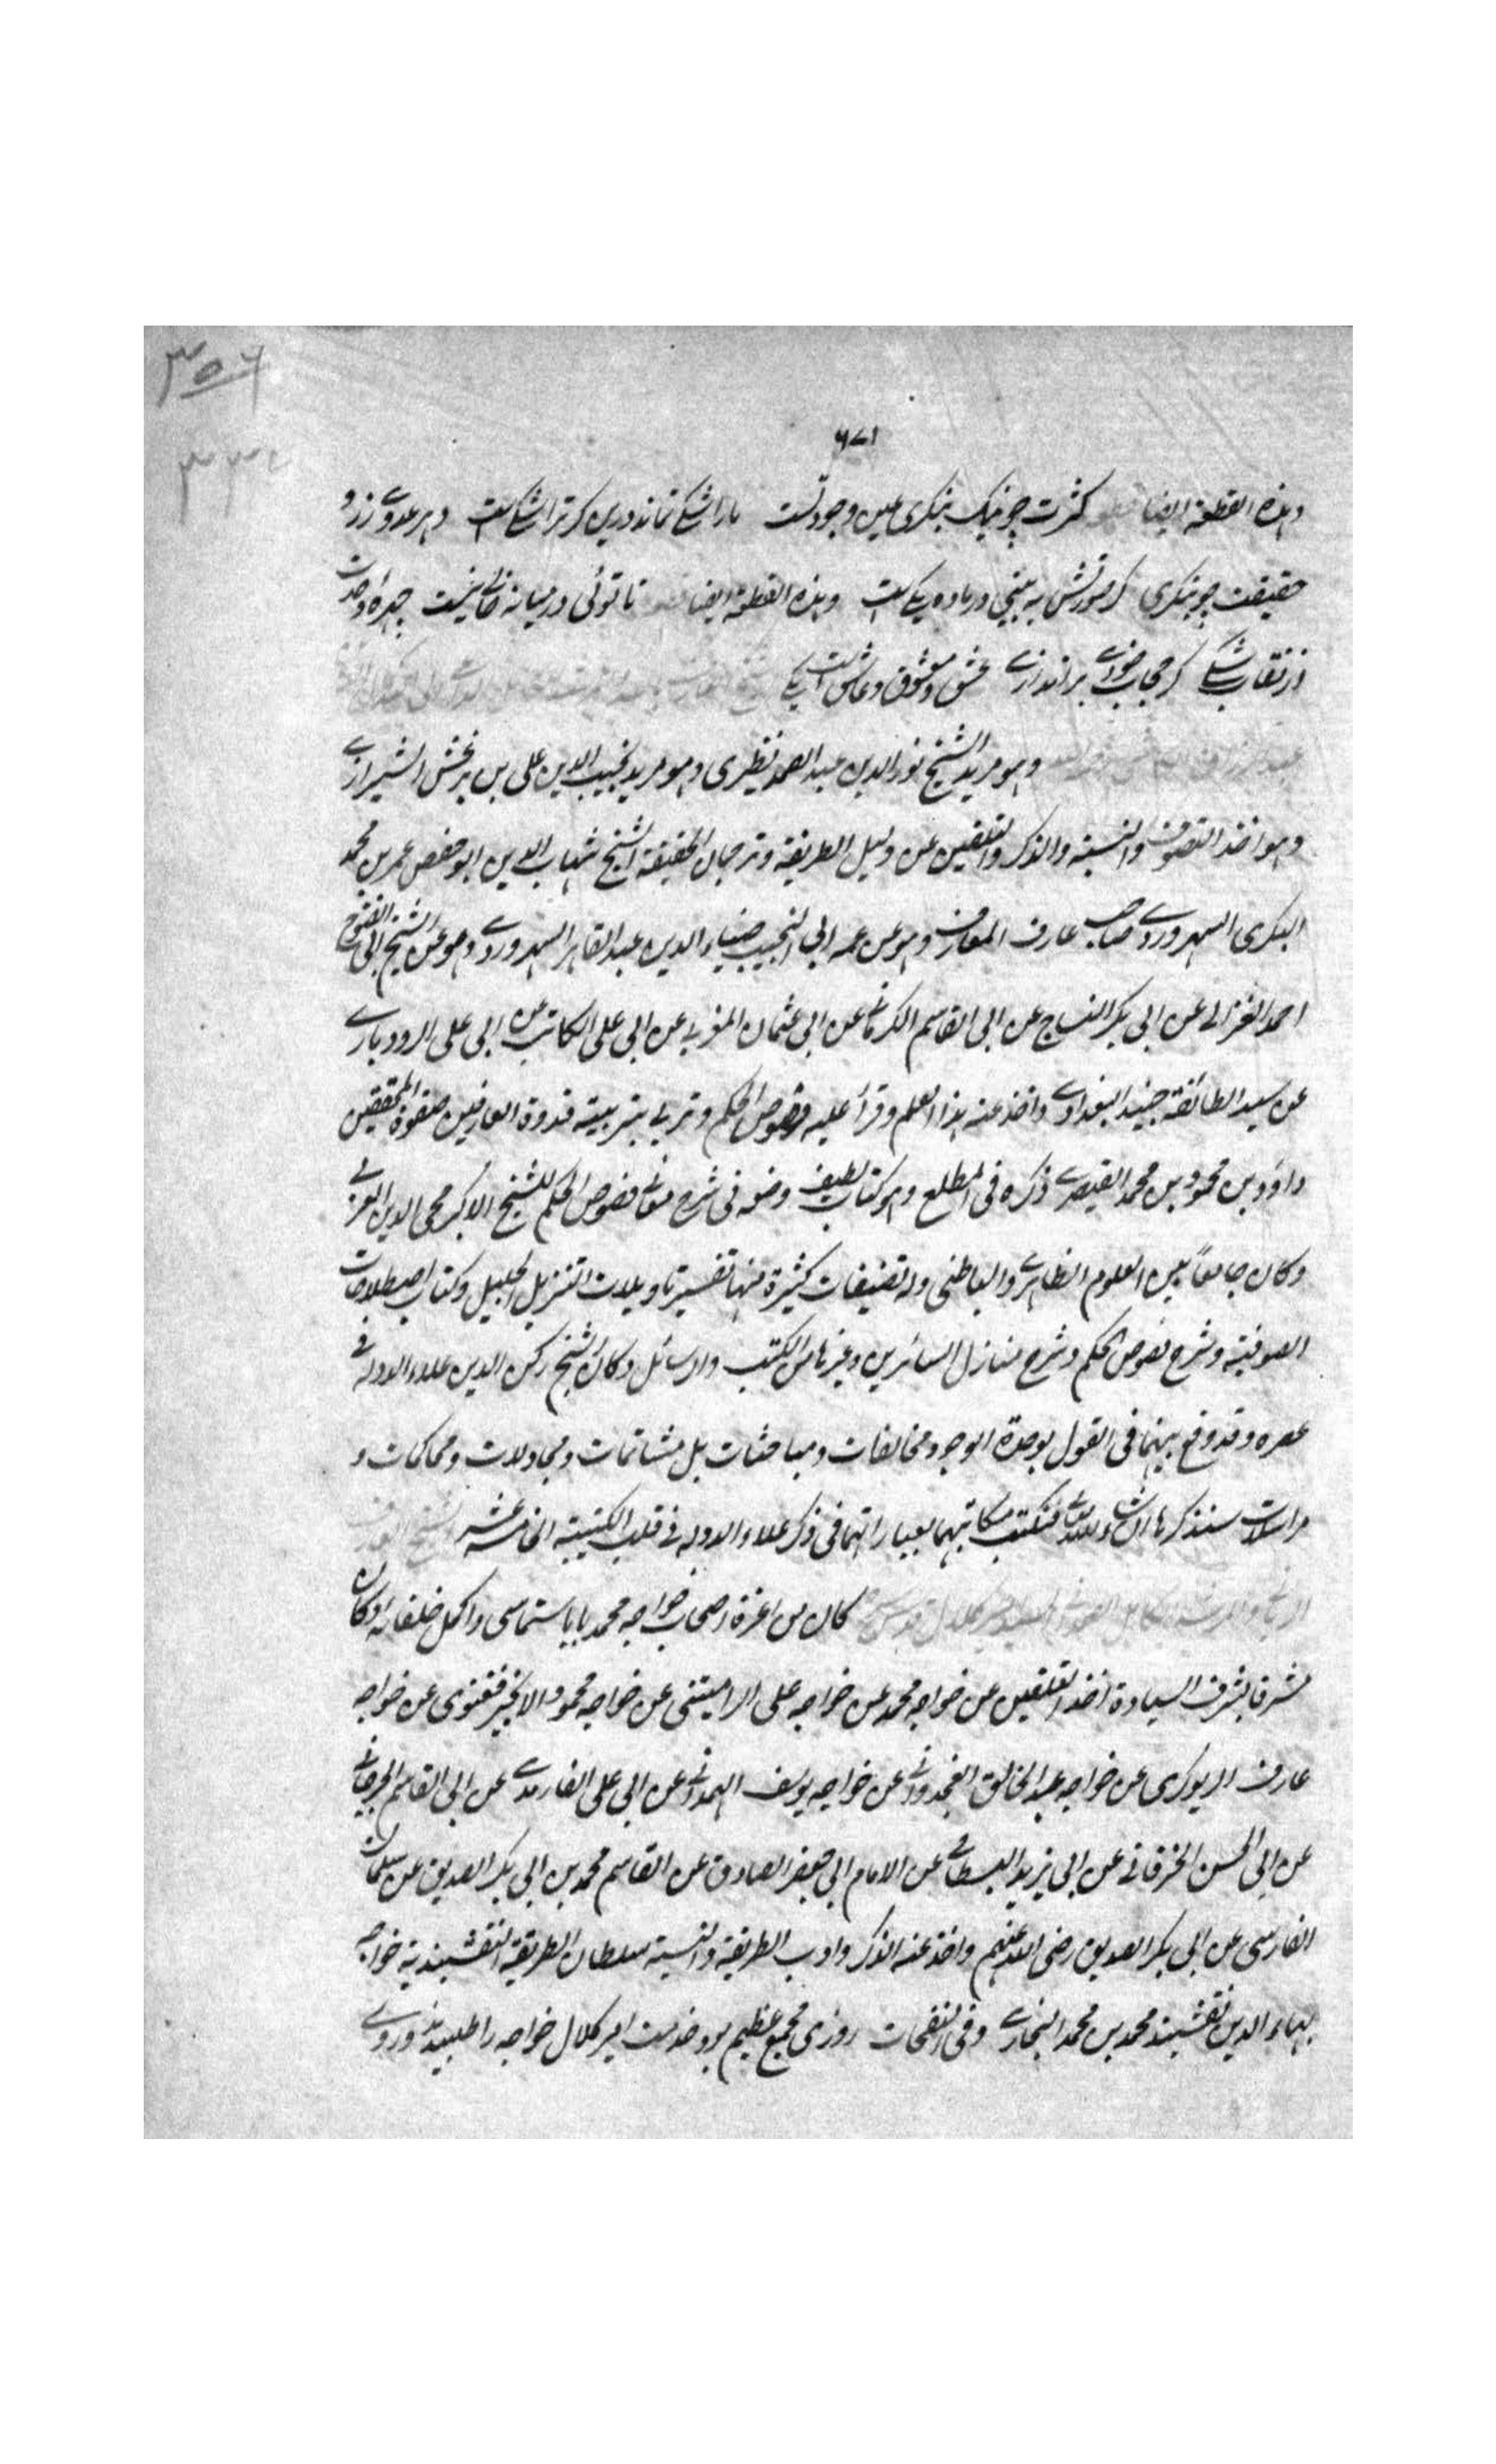 ٣٥٦
٦٧١
٣٣٤
وهذه القطعة ايضا كثرت چو نيك بنگرى عين وحدتست ما را شكى نماند درين گر ترا شكيست در هر عدد ز روى
حقيقت چو بنگرى گر صورتش به بينى ور ماده يكيست وهذه القطعة ايضا تا توئى در ميانه خالى نيست چهره وحدت
از نقاب شكى گر حجاب خودى بر اندازى عشق و معشوق و عاشق است يكى
وهو مريد الشيخ نور الدين عبد الصمد نطنزى وهو مريد نجيب الدين على بن بزغش الشيرازى
وهو اخذ التصوف والنسبة والذكر والتلقين عن دليل الطريقة وترجمان الحقيقة الشيخ شهاب الدين ابو حفص عمر بن محمد
البكرى السهروردى صاحب عارف المعارف وهو عن عمه ابى النجيب ضياء الدين عبد القاهر السهروردى وهو عن الشيخ ابى الفتوح
احمد الغزالى عن ابى بكر النساج عن ابى القاسم الكرمانى عن ابى عثمان المغربى عن ابى على الكاتب عن ابى على الرودبارى
عن سيد الطائفة جنيد البغدادى واخذ عنه هذا العلم وقرأ عليه فصوص الحكم وتربى بتربيته قدوة العارفين صفوة المحققين
داود بن محمود بن محمد القيصرى ذكره فى المطلع وهو كتاب لطيف وضعه فى شرح معانى فصوص الحكم للشيخ الاكبر محى الدين العربى
وكان جامعاً بين العلوم الظاهرى والباطنى وله تصنيفات كثيرة منها تفسير تاويلات التنزيل الجليل وكتاب اصطلاحات
الصوفية وشرح فصوص الحكم وشرح منازل السائرين وغيرها من الكتب والرسائل وكان الشيخ ركن الدين علاء الدولة فى
عصره وقد وقع بينهما فى القول بوحدة الوجود مخالفات ومباحثات بل مشاتمات ومجادلات ومحاكمات و
مراسلات سنذكرها ان شاء الله تعالى فنكتب مكاتبتهما بعباراتهما فى ذكر علاء الدولة فى قلب الكتيبة الخامسة عشر
كان من اعزة اصحاب خواجه محمد بابا سماسى واكمل خلفائه وكان
مشرفا بشرف السيادة اخذ التلقين عن خواجه محمد عن خواجه على الراميتنى عن خواجه محمود الانجير فغنوى عن خواجه
عارف الريوكرى عن خواجه عبد الخالق الغجدوانى عن خواجه يوسف الهمدانى عن ابى على الفارمدى عن ابى القاسم الجرجانى
عن ابى الحسن الخرقانى عن ابى يزيد البسطامى عن الامام ابى جعفر الصادق عن القاسم محمد بن ابى بكر الصديق عن سلمان
الفارسى عن ابى بكر الصديق رضى الله عنهم واخذ عنه الذكر وادب الطريقة والنسبة سلطان الطريقة النقشبندية خواجه
بهاء الدين نقشبند محمد بن محمد البخارى وفى النفحات روزى مجمع عظيم بود خدمت امير كلال خواجه را طلبيدند وروى